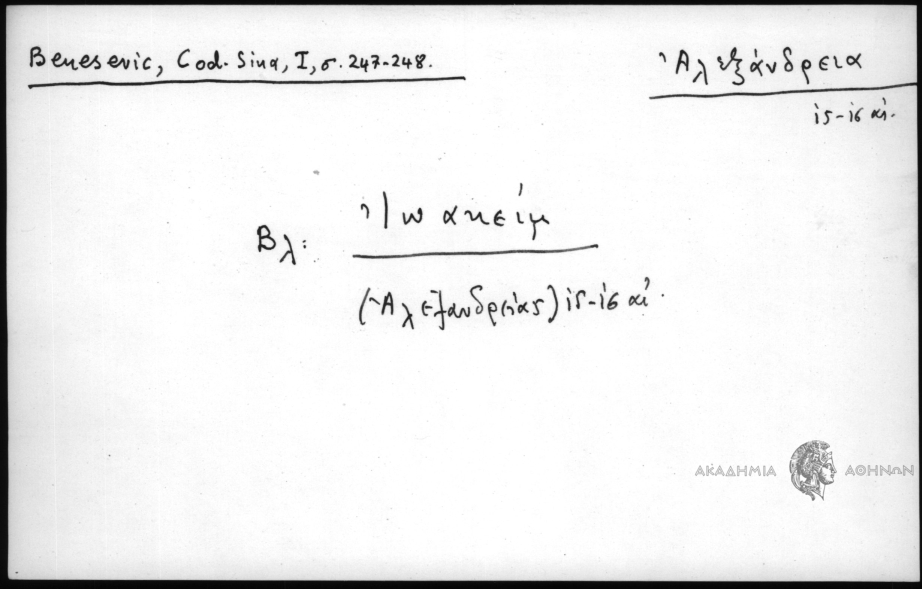 Benesevic, Cod. Sina, I, σ. 247-248.
Ἀλεξάνδρεια
ις-ιϛ αἰ.
Βλ: Ἰωακείμ
(Ἀλεξανδρείας) ις-ιϛ αἰ.
ΑΚΑΔΗΜΙΑ ΑΘΗΝΩΝ